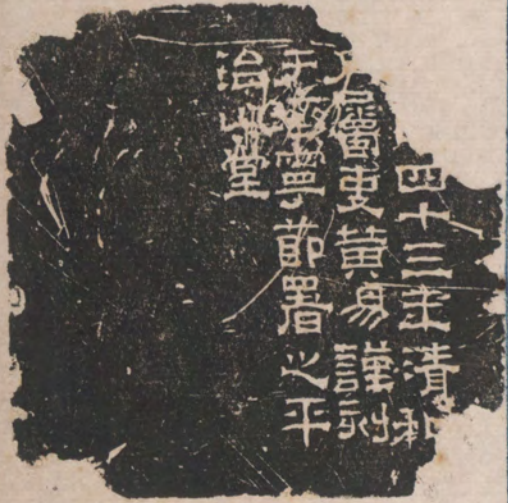 四十三年清和
屬吏黃易謹
于濟寧節署之平
治山堂